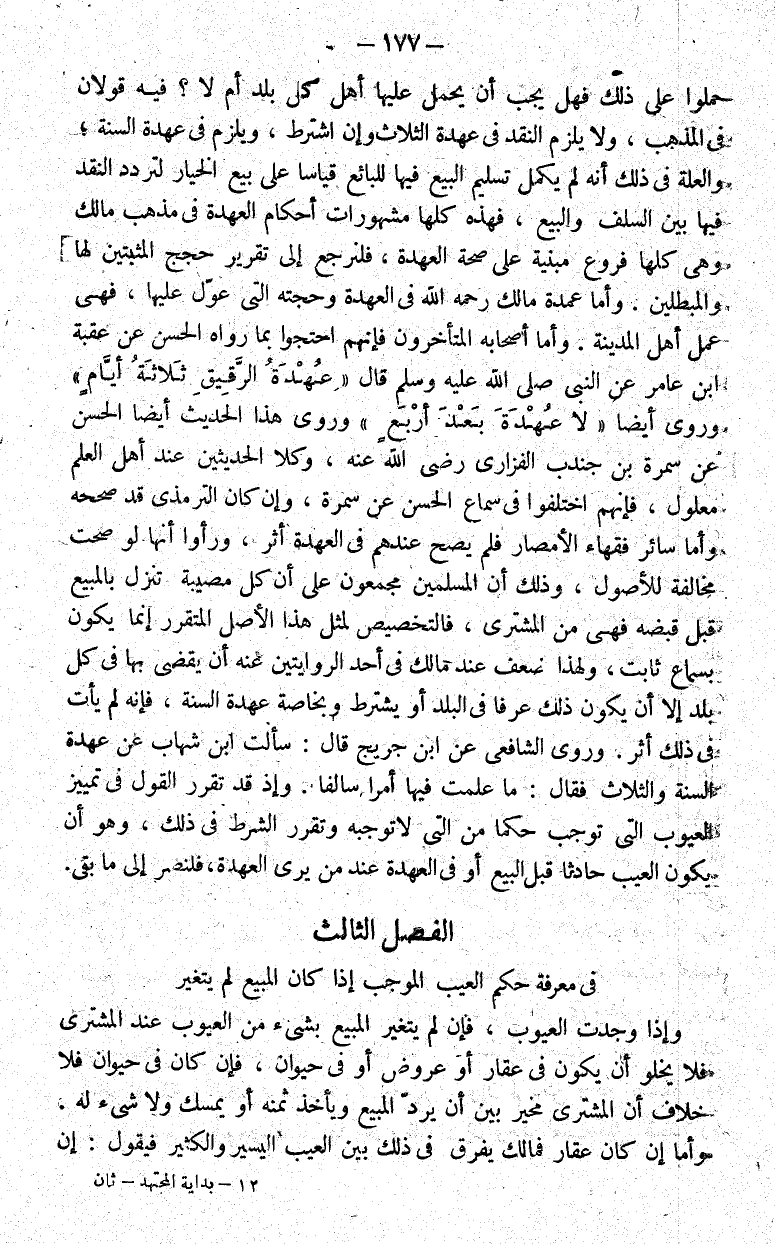 — ١٧٧ —
حملوا على ذلك فهل يجب أن يحمل عليها أهل كل بلد أم لا ؟ فيه قولان
فى المذهب ، ولا يلزم النقد فى عهدة الثلاث وإن اشترط ، ويلزم فى عهدة السنة ؛
والعلة فى ذلك أنه لم يكمل تسليم البيع فيها للبائع قياسا على بيع الخيار لتردد النقد
فيها بين السلف والبيع ، فهذه كلها مشهورات أحكام العهدة فى مذهب مالك
وهى كلها فروع مبنية على صحة العهدة ، فلنرجع إلى تقرير حجج المثبتين لها
والمبطلين . وأما عمدة مالك رحمه الله فى العهدة وحجته التى عوّل عليها ، فهى
عمل أهل المدينة . وأما أصحابه المتأخرون فإنهم احتجوا بما رواه الحسن عن عقبة
ابن عامر عن النبى صلى الله عليه وسلم قال « عُهْدَةُ الرَّقِيقِ ثَلَاثَةُ أيَّامٍ »
وروى أيضا « لا عُهْدَةَ بَعْدَ أرْبَعٍ » وروى هذا الحديث أيضا الحسن
عن سمرة بن جندب الفزارى رضى الله عنه ، وكلا الحديثين عند أهل العلم
معلول ، فإنهم اختلفوا فى سماع الحسن عن سمرة ، وإن كان الترمذى قد صححه
وأما سائر فقهاء الأمصار فلم يصح عندهم فى العهدة أثر ، ورأوا أنها لو صحت
مخالفة للأصول ، وذلك أن المسلمين مجمعون على أن كل مصيبة تنزل بالمبيع
قبل قبضه فهى من المشترى ، فالتخصيص لمثل هذا الأصل المتقرر إنما يكون
بسماع ثابت ، ولهذا ضعف عند مالك فى أحد الروايتين عنه أن يقضى بها فى كل
بلد إلا أن يكون ذلك عرفا فى البلد أو يشترط وبخاصة عهدة السنة ، فإنه لم يأت
فى ذلك أثر . وروى الشافعى عن ابن جريج قال : سألت ابن شهاب عن عهدة
السنة والثلاث فقال : ما علمت فيها أمرا سالفا . وإذ قد تقرر القول فى تمييز
العيوب التى توجب حكما من التى لا توجبه وتقرر الشرط فى ذلك ، وهو أن
يكون العيب حادثا قبل البيع أو فى العهدة عند من يرى العهدة ، فلنصر إلى ما بقى .
الفصل الثالث
فى معرفة حكم العيب الموجب إذا كان المبيع لم يتغير
وإذا وجدت العيوب ، فإن لم يتغير المبيع بشىء من العيوب عند المشترى
فلا يخلو أن يكون فى عقار أو عروض أو فى حيوان ، فإن كان فى حيوان فلا
خلاف أن المشترى مخير بين أن يردّ المبيع ويأخذ ثمنه أو يمسك ولا شىء له .
وأما إن كان عقار فمالك يفرق فى ذلك بين العيب اليسير والكثير فيقول : إن
١٢ – بداية المجتهد – ثان